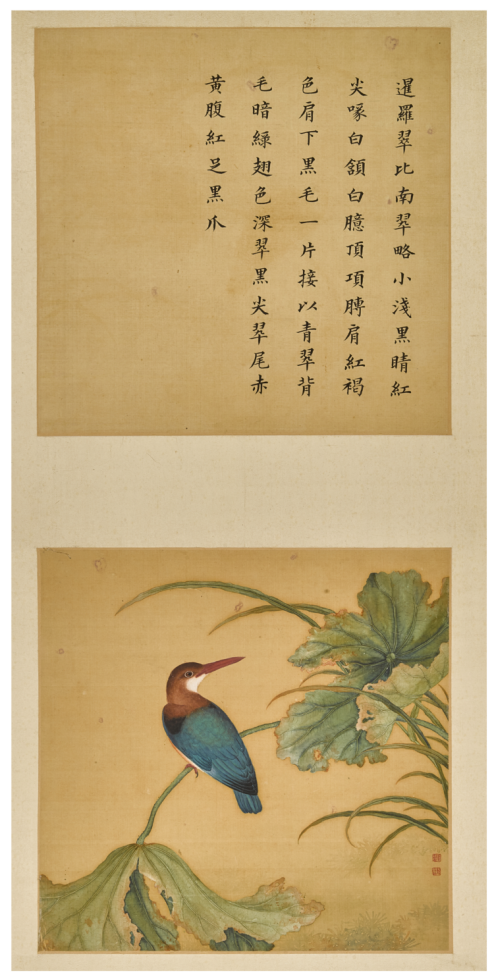 暹羅翠比南翠略小淺黑睛紅
尖喙白頷白臆頂項膊肩紅褐
色肩下黑毛一片接以青翠背
毛暗綠翅色深翠黑尖翠尾赤
黃腹紅足黑爪